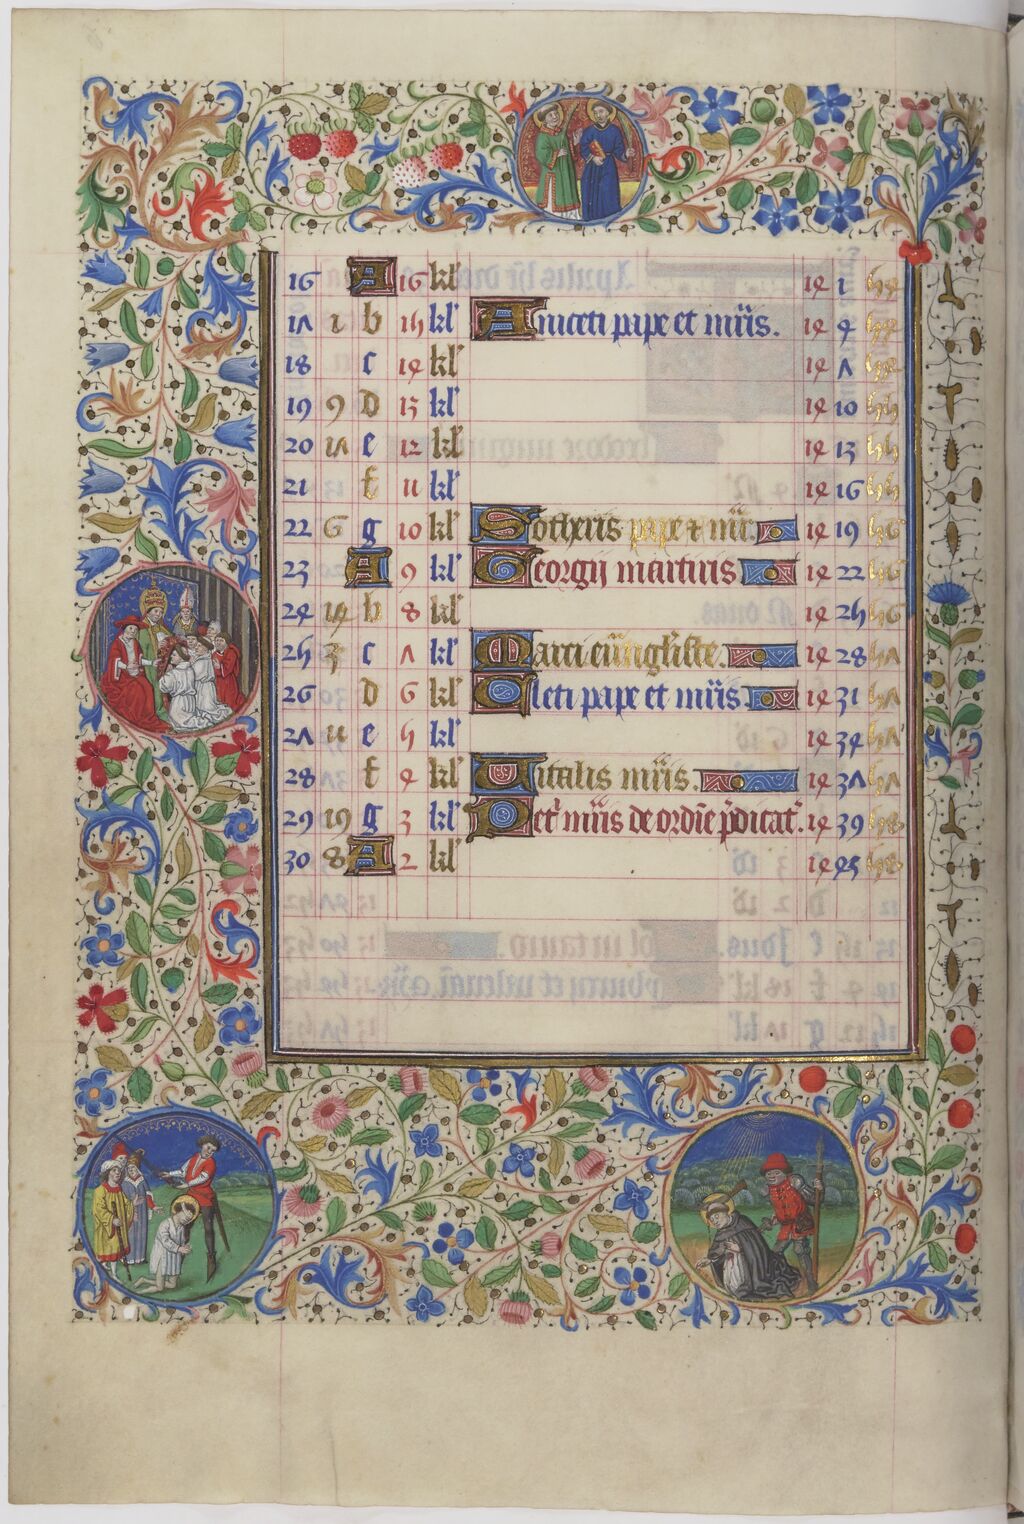 16 A 16 kl' 14 1 54
17 1 b 15 kl' Aniceti pape et mr̃is. 14 4 54
18 c 14 kl' 14 7 54
19 9 D 13 kl' 14 10 55
20 17 e 12 kl' 14 13 55
21 f 11 kl' 14 16 55
22 6 g 10 kl' Sotheris pape & mr̃. 14 19 56
23 A 9 kl' Georgij martiris 14 22 56
24 14 b 8 kl' 14 25 56
25 3 c 7 kl' Marci euãgl'iste. 14 28 57
26 D 6 kl' Cleti pape et mr̃is. 14 31 57
27 11 e 5 kl' 14 34 57
28 f 4 kl' Uitalis mr̃is. 14 37 57
29 19 g 3 kl' Pet' mr̃is de ordĩe p̃dicat'. 14 39 58
30 8 A 2 kl' 14 45 58